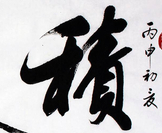 積
丙申初夏